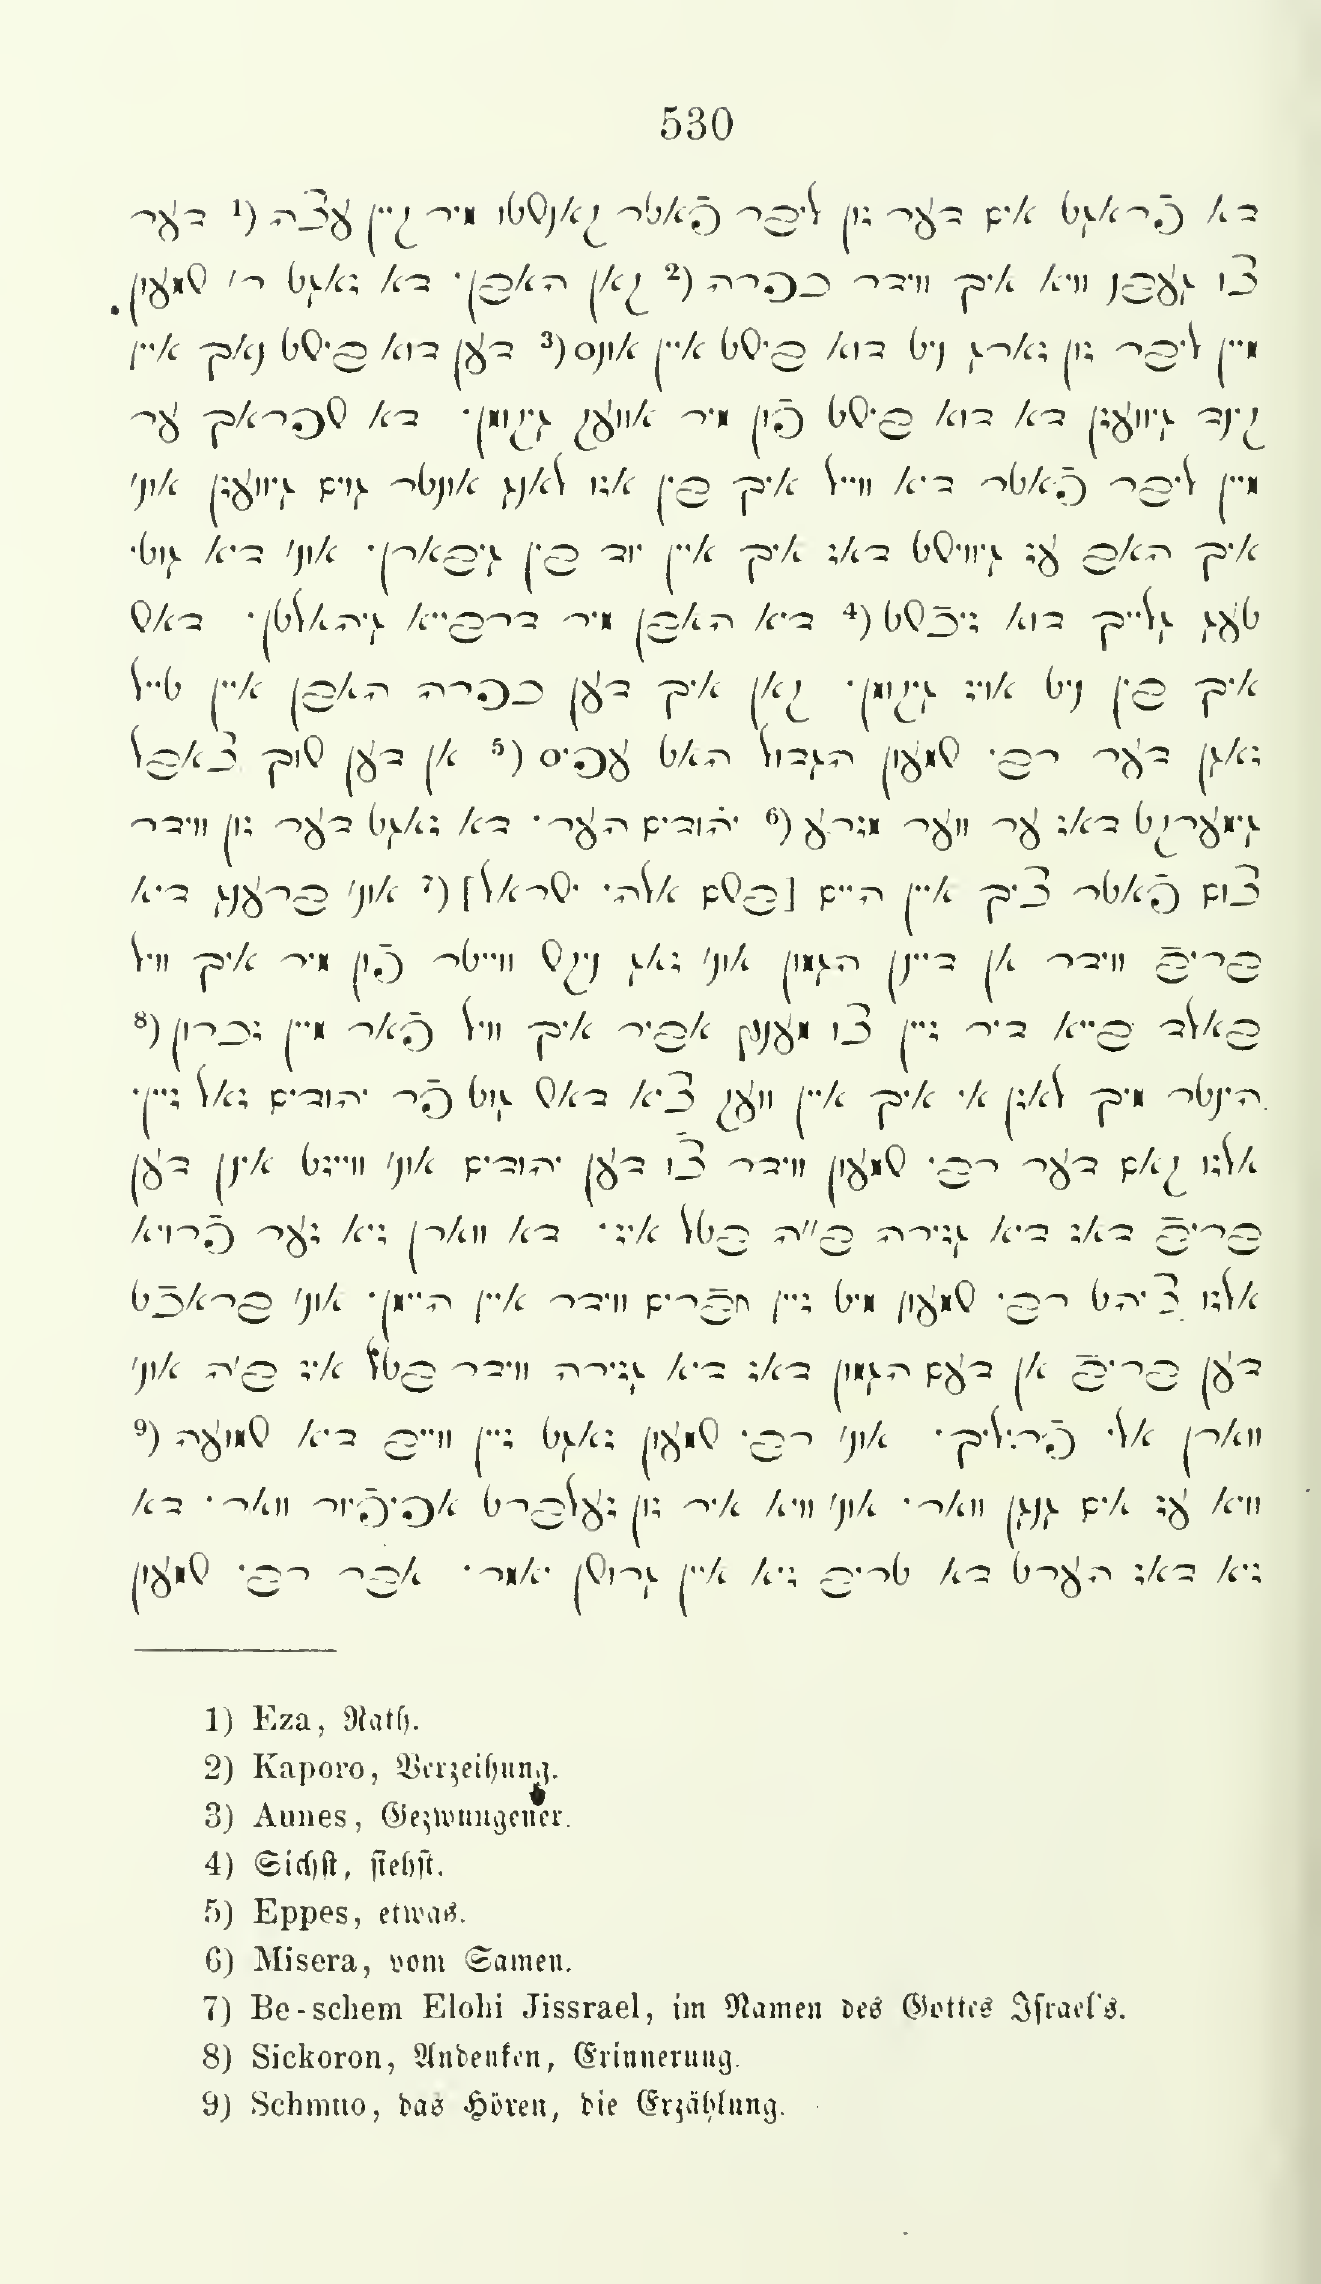 530
דא פֿראגט אים דער זון ליבר פֿאטר קאנשטו מיר קיין עצה (1 דער
צו געבן וויא איך ווידר כפרה (2 קאן האבן· דא זאגט ר' שמעון
מיין ליבר זון זארג ניט דוא בישט איין אונס (3 דען דוא בישט נאך איין
קינד גיוועזן דא דוא בישט פֿון מיר אוועק גיקומן· דא שפראך ער
מיין ליבר פֿאטר דיא ווייל איך בין אזו לאנג אונטר גוים גיוועזן אונ'
איך האב עז גיווישט דאז איך איין יוד בין גיבארן· אונ' דיא גוטי
טעג גלייך דוא זיכֿשט (4 דיא האבן מיר דרבייא גיהאלטן· דאש
איך בין ניט אויז גיקומן· קאן איך דען כפרה האבן איין טייל
זאגן דער רבי שמעון הגדול האט עפיס (5 אן דען שוך צאבל
גימערקט דאז ער ווער מזרע (6 יהודים הער· דא זאגט דער זון ווידר
צום פֿאטר ציך איין היים [בשם אלהי ישראל] (7 אונ' ברענג דיא
בריבֿ ווידר אן דיינן הגמון אונ' זאג ניקש ווייטר פֿון מיר איך וויל
באלד בייא דיר זיין צו מענץ אביר איך וויל פֿאר מיין זכרון (8
הינטר מיך לאזן א' איך איין וועק ציא דאש גוט פֿר יהודים זאל זיין·
אלזו קאם דער רבי שמעון ווידר צו דען יהודים אונ' ווייזט אינן דען
בריבֿ דאז דיא גזירה ב"ה בטל איז· דא ווארן זיא זער פֿרויא
אלזו ציהט רבי שמעון מיט זיין חבֿרים ווידר איין היימן· אונ' בראכֿט
דען בריבֿ אן דעם הגמון דאז דיא גזירה ווידר בטל איז ב'ה אונ'
ווארן אלי פֿרייליך· אונ' רבי שמעון זאגט זיין ווייב דיא שמועה (9
וויא עז אים גנגן וואר· אונ' וויא איר זון זעלברט אפיפֿיור וואר· דא
זיא דאז הערט דא טריב זיא איין גרושן יאמר· אבר רבי שמעון
1) Eza, Rath.
2) Kaporo, Verzeihung.
3) Aunes, Gezwungener.
4) Sichst, siehst.
5) Eppes, etwas.
6) Misera, vom Samen.
7) Be-schem Elohi Jissrael, im Namen des Gottes Israel's.
8) Sickoron, Andenken, Erinnerung.
9) Schmuo, das Hören, die Erzählung.